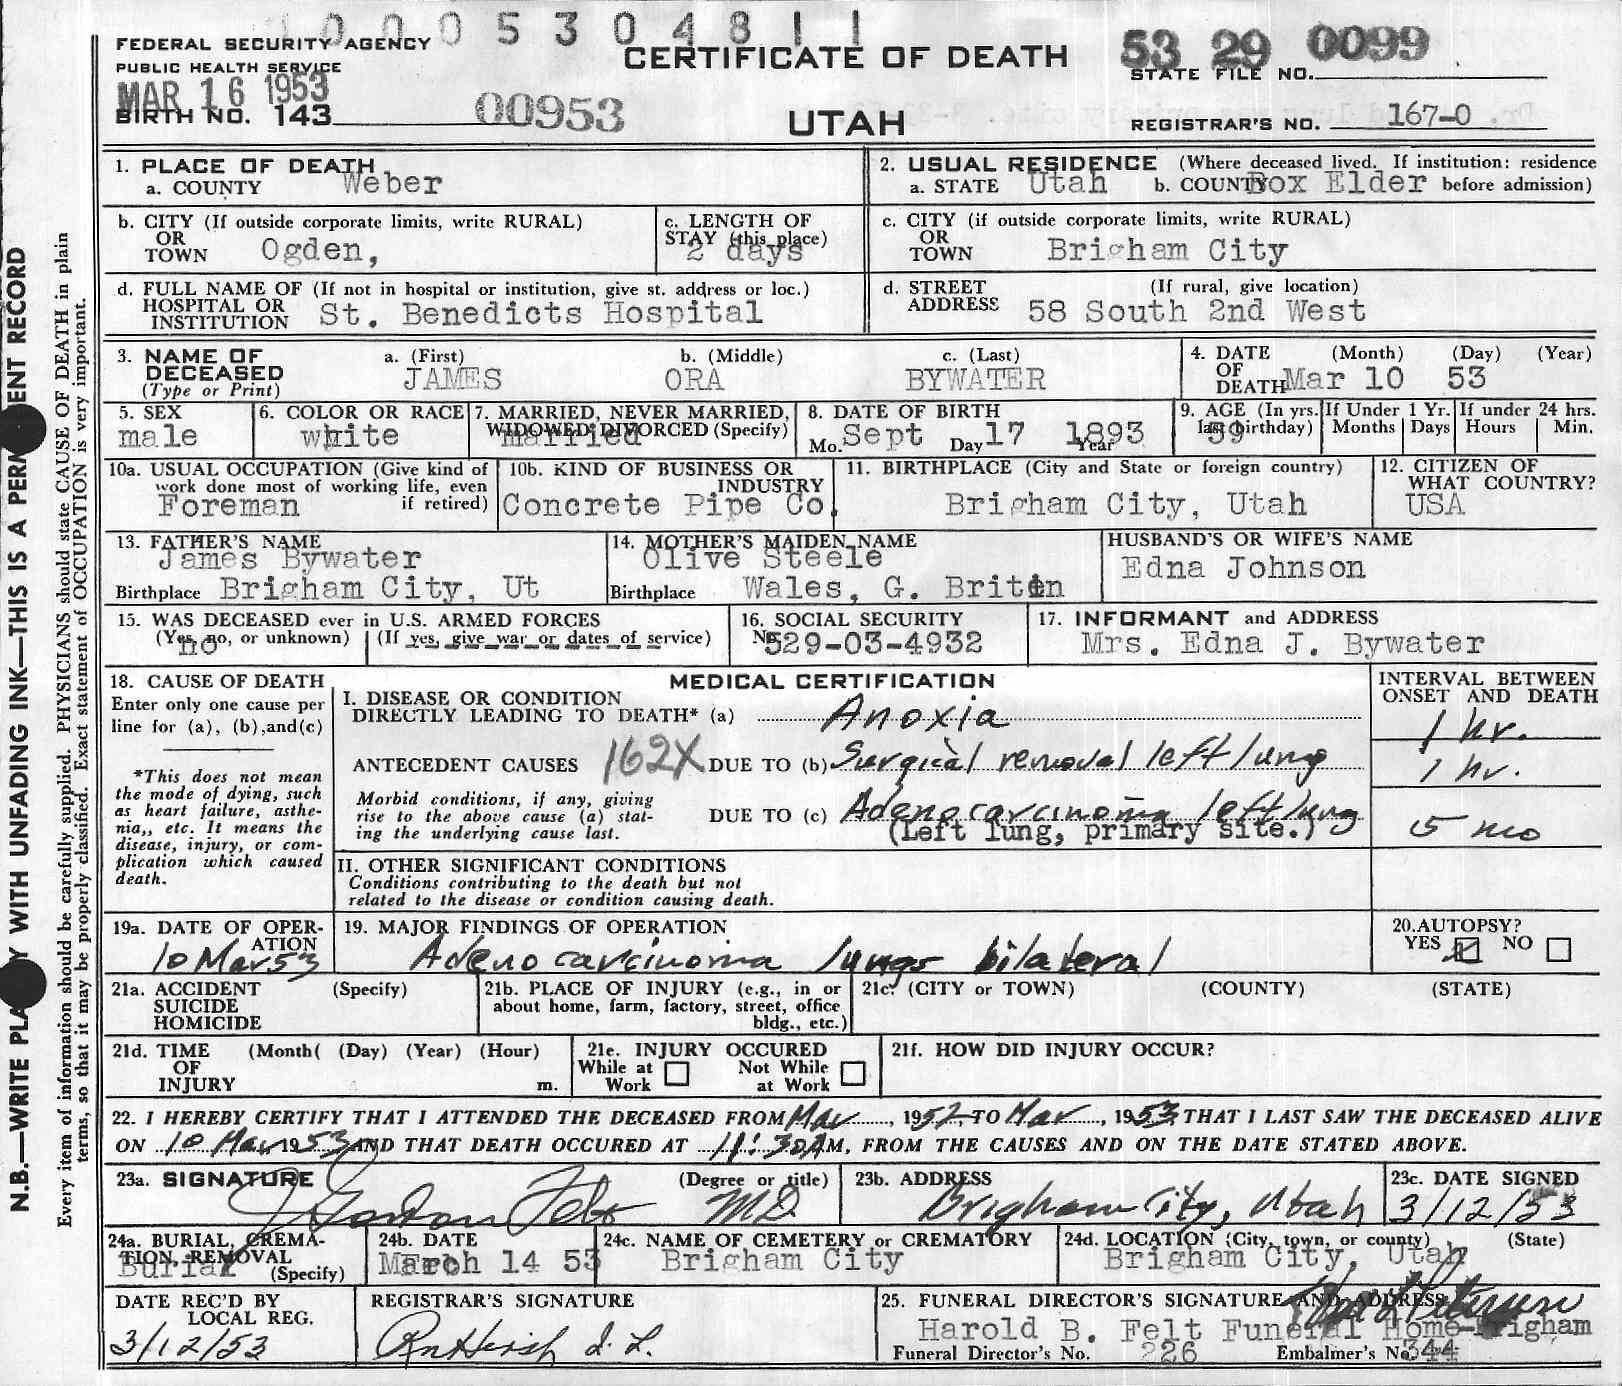 10005304811
FEDERAL SECURITY AGENCY
PUBLIC HEALTH SERVICE
MAR 16 1953
BIRTH NO. 143
00953
CERTIFICATE OF DEATH
UTAH
53 29 0099
STATE FILE NO.
REGISTRAR'S NO. 167-0
1. PLACE OF DEATH
a. COUNTY Weber
2. USUAL RESIDENCE (Where deceased lived. If institution: residence
a. STATE Utah b. COUNTY Box Elder before admission)
b. CITY (If outside corporate limits, write RURAL)
OR
TOWN Ogden,
c. LENGTH OF
STAY (this place)
2 days
c. CITY (if outside corporate limits, write RURAL)
OR
TOWN Brigham City
d. FULL NAME OF (If not in hospital or institution, give st. address or loc.)
HOSPITAL OR
INSTITUTION St. Benedicts Hospital
d. STREET (If rural, give location)
ADDRESS 58 South 2nd West
3. NAME OF a. (First) b. (Middle) c. (Last)
DECEASED JAMES ORA BYWATER
(Type or Print)
4. DATE (Month) (Day) (Year)
OF
DEATH Mar 10 53
5. SEX
male
6. COLOR OR RACE
white
7. MARRIED, NEVER MARRIED,
WIDOWED, DIVORCED (Specify)
married
8. DATE OF BIRTH
Mo. Sept Day 17 Year 1893
9. AGE (In yrs.
last birthday)
59
If Under 1 Yr.
Months Days
If under 24 hrs.
Hours Min.
10a. USUAL OCCUPATION (Give kind of
work done most of working life, even
if retired)
Foreman
10b. KIND OF BUSINESS OR
INDUSTRY
Concrete Pipe Co.
11. BIRTHPLACE (City and State or foreign country)
Brigham City, Utah
12. CITIZEN OF
WHAT COUNTRY?
USA
13. FATHER'S NAME
James Bywater
Birthplace Brigham City, Ut
14. MOTHER'S MAIDEN NAME
Olive Steele
Birthplace Wales, G. Britin
HUSBAND'S OR WIFE'S NAME
Edna Johnson
15. WAS DECEASED ever in U.S. ARMED FORCES
(Yes, no, or unknown) (If yes, give war or dates of service)
no
16. SOCIAL SECURITY
No. 529-03-4932
17. INFORMANT and ADDRESS
Mrs. Edna J. Bywater
18. CAUSE OF DEATH
Enter only one cause per
line for (a), (b),and(c)
*This does not mean
the mode of dying, such
as heart failure, asthe-
nia,, etc. It means the
disease, injury, or com-
plication which caused
death.
MEDICAL CERTIFICATION
I. DISEASE OR CONDITION
DIRECTLY LEADING TO DEATH* (a) Anoxia
ANTECEDENT CAUSES 162X DUE TO (b) Surgical removal left lung
Morbid conditions, if any, giving
rise to the above cause (a) stat-
ing the underlying cause last.
DUE TO (c) Adenocarcinoma left lung
(Left lung, primary site.)
INTERVAL BETWEEN
ONSET AND DEATH
1 hr.
1 hr.
5 mo
II. OTHER SIGNIFICANT CONDITIONS
Conditions contributing to the death but not
related to the disease or condition causing death.
19a. DATE OF OPER-
ATION
10 Mar 53
19. MAJOR FINDINGS OF OPERATION
Adenocarcinoma lungs bilateral
20. AUTOPSY?
YES NO
21a. ACCIDENT (Specify)
SUICIDE
HOMICIDE
21b. PLACE OF INJURY (e.g., in or
about home, farm, factory, street, office
bldg., etc.)
21c. (CITY or TOWN) (COUNTY) (STATE)
21d. TIME (Month( (Day) (Year) (Hour)
OF
INJURY m.
21e. INJURY OCCURED
While at Not While
Work at Work
21f. HOW DID INJURY OCCUR?
22. I HEREBY CERTIFY THAT I ATTENDED THE DECEASED FROM Mar, 1952, TO Mar, 1953, THAT I LAST SAW THE DECEASED ALIVE
ON 10 Mar 1953 AND THAT DEATH OCCURED AT 11:30 AM, FROM THE CAUSES AND ON THE DATE STATED ABOVE.
23a. SIGNATURE (Degree or title)
J Gordon Felt M.D.
23b. ADDRESS
Brigham City, Utah
23c. DATE SIGNED
3/12/53
24a. BURIAL, CREMA-
TION, REMOVAL
(Specify)
Burial
24b. DATE
March 14 53
24c. NAME OF CEMETERY or CREMATORY
Brigham City
24d. LOCATION (City, town, or county) (State)
Brigham City, Utah
DATE REC'D BY
LOCAL REG.
3/12/53
REGISTRAR'S SIGNATURE
25. FUNERAL DIRECTOR'S SIGNATURE AND ADDRESS
Harold B. Felt Funeral Home-Brigham
Funeral Director's No. 226 Embalmer's No. 344
N.B.—WRITE PLAINLY WITH UNFADING INK—THIS IS A PERMANENT RECORD
Every item of information should be carefully supplied. PHYSICIANS should state CAUSE OF DEATH in plain
terms, so that it may be properly classified. Exact statement of OCCUPATION is very important.